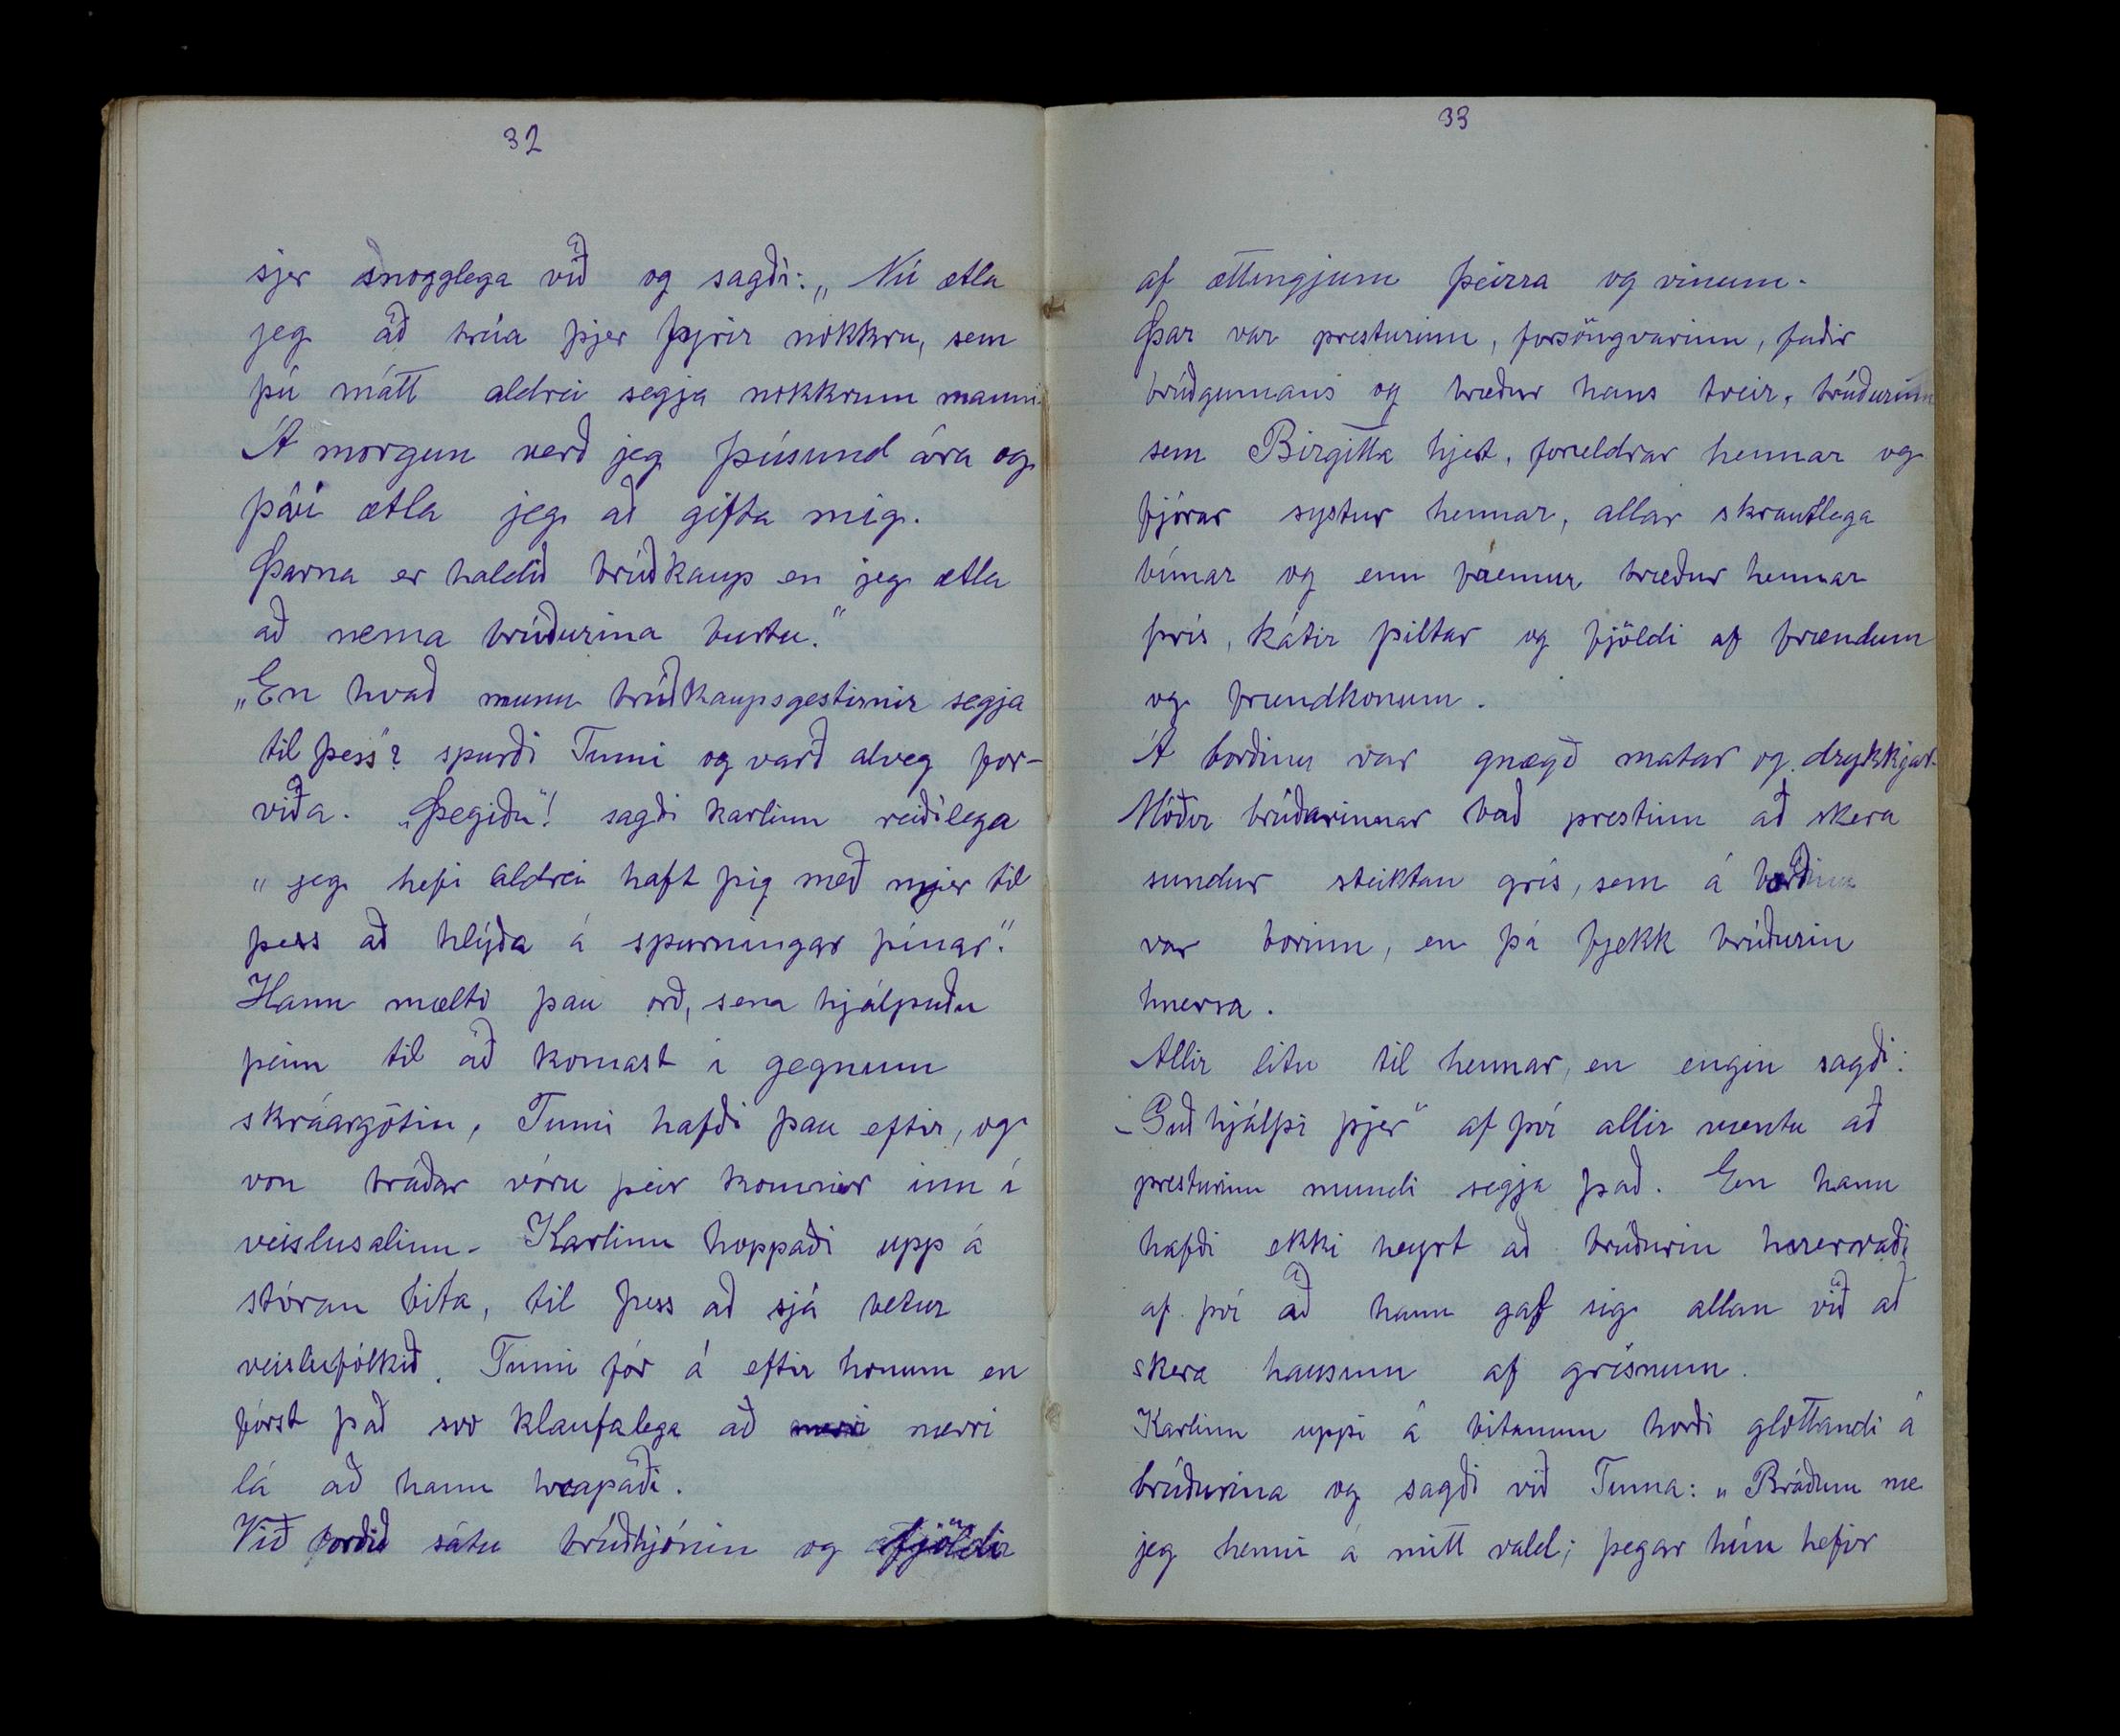 32
sjer snogglega við og sagði: „Nú ætla
jeg að trúa þjer fyrir nokkru, sem
þú mátt aldrei segja nokkrum manni.
Á morgun verð jeg þúsund ára og
þávi ætla jeg að gifta mig.
Þarna er haldið brúðkaup en jeg ætla
að nema brúðurina burtu."
„En hvað munu brúðkaupsgestirnir segja
til þess"? spurði Tumi og varð alveg for-
viða. „Þegiðu"! sagði karlinn reiðilega
„jeg hefi aldrei haft þig með mjer til
þess að hlýða á spurningar þínar."
Hann mælti þau orð, sem hjálpuðu
þeim til að komast í gegnum
skráargötin, Tumi hafði þau eftir, og
von bráðar vóru þeir komnir inn í
veislusalinn. Karlinn hoppaði upp á
stóran bita, til þess að sjá betur
veislufólkið. Tumi fór á eftir honum en
fórst það svo klaufalega að nærri
lá að hann hrapaði.
Við borðið sátu brúðhjónin og fjöldi
33
af ættingjum þeirra og vinum.
Þar var presturinn, forsöngvarinn, faðir
brúðgumans og bræður hans tveir, brúðurinn
sem Birgitta hjet, foreldrar hennar og
fjórar systur hennar, allar skrautlega
búnar og enn fremur bræður hennar
þrís, kátir piltar og fjöldi af frændum
og frændkonum.
Á borðinu var gnægð matar og drykkjar.
Móðir brúðarinnar bað prestinn að skera
sundur steiktan grís, sem á borðinu
var borinn, en þá fjekk brúðurin
hnerra.
Allir litu til hennar, en engin sagði:
„Guð hjálpi þjer" af því allir væntu að
presturinn mundi segja það. En hann
hafði ekki heyrt að brúðurin hnerraði
af því að hann gaf sig allan við að
skera hausinn af grísnum.
Karlinn uppi á bitanum horði glottandi á
brúðurina og sagði við Tuma: „Bráðum næ
jeg henni á mitt vald; þegar hún hefir